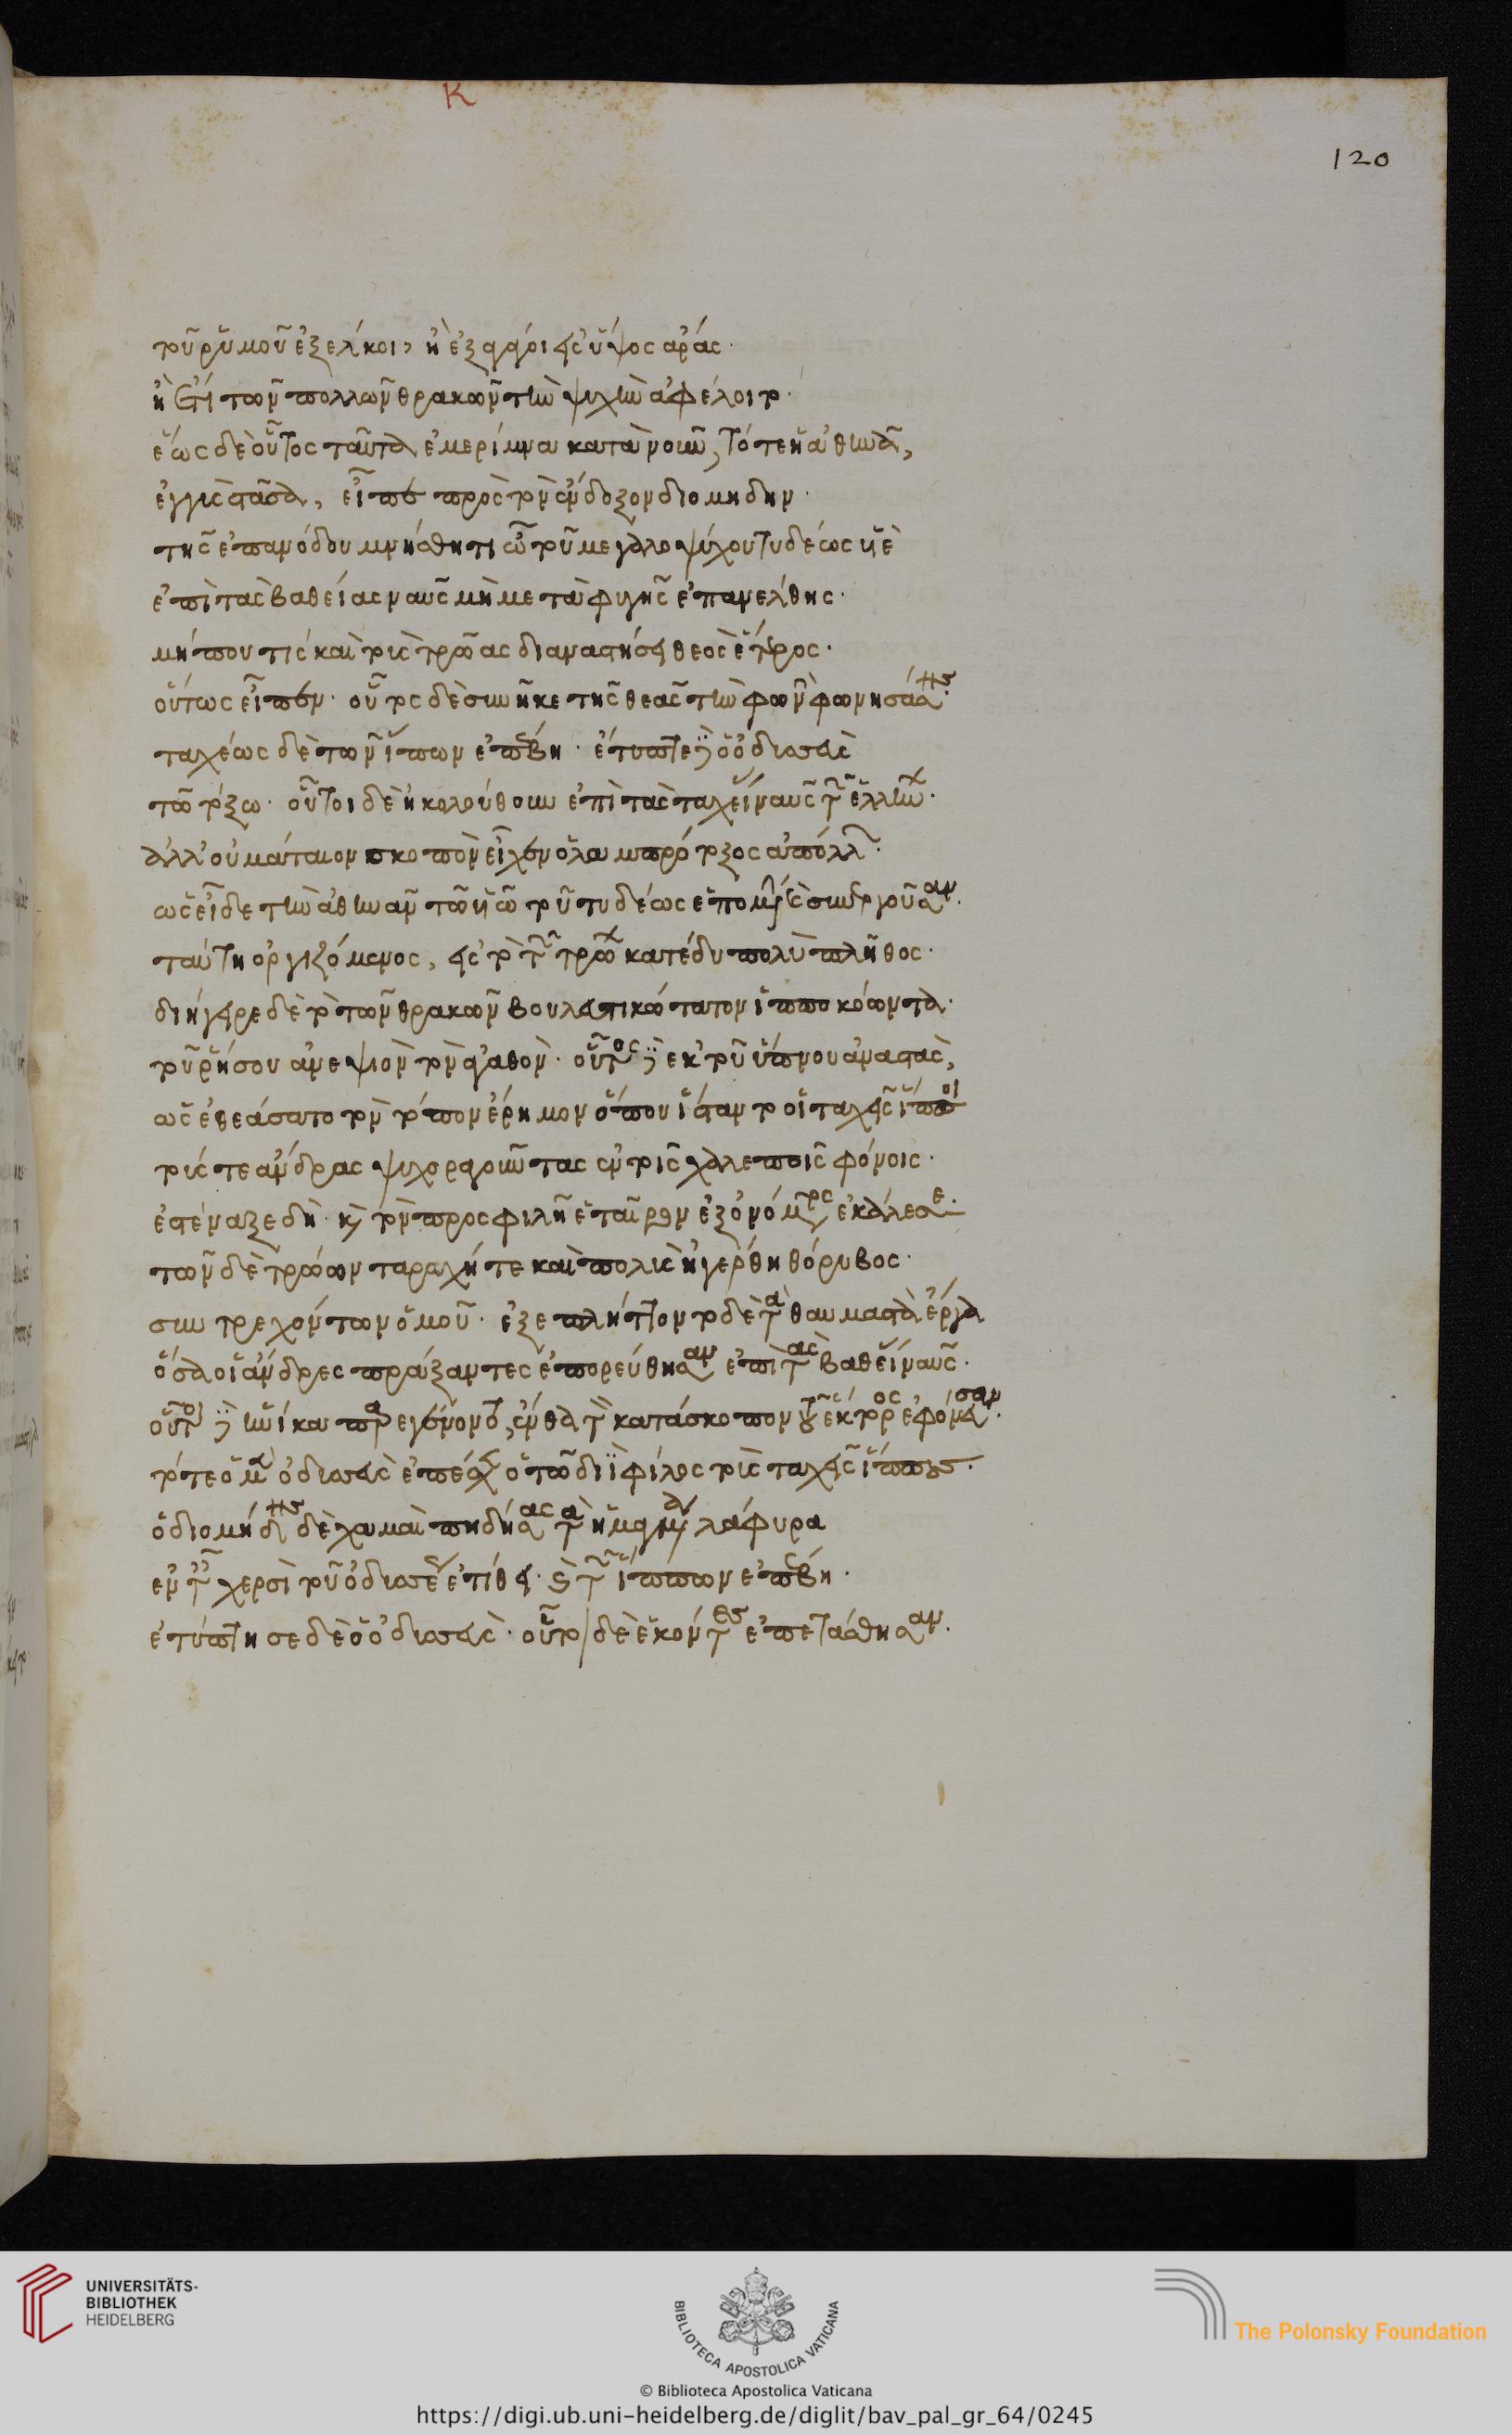 K
120
τοῦ ῥυμοῦ ἐξέλκοι, ἢ ἐξαγάγοι εἰς ὕψος ἄρας·
ἢ ἔτι τῶν πολλῶν θρακῶν τὴν ψυχὴν ἀφέλοιτο·
ἕως δὲ οὗτος ταῦτα ἐμερίμνα κατὰ νοῦν, τότε ἡ ἀθηνᾶ,
ἐγγὺς στᾶσα, εἶπε πρὸς τὸν ἔνδοξον διομήδην·
τῆς ἐπανόδου μνήσθητι ὦ τοῦ μεγαλοψύχου τυδέως υἱὲ
ἐπὶ τὰς βαθείας ναῦς μὴ μετὰ φυγῆς ἐπανέλθης·
μήπου τις καὶ τοὺς τρῶας διαναστήσει θεὸς ἕτερος·
οὕτως εἶπεν· οὗτος δὲ συνῆκε τῆς θεᾶς τὴν φωνὴν φωνησάσης·
ταχέως δὲ τῶν ἵππων ἐπέβη· ἔτυπτε δὲ ὁ ὀδυσσεὺς
τῶ τόξω· οὗτοι δὲ ἠκολούθουν ἐπὶ τὰς ταχείας ναῦς τῶν ἑλλήνων·
ἀλλ' οὐ μάταιον σκοπὸν εἶχεν ὁ λαμπρότοξος ἀπόλλων·
ὡς εἶδε τὴν ἀθηνᾶν τῶ υἱῶ τοῦ τυδέως ἑπομένην καὶ συνεργοῦσαν·
ταύτη ὀργιζόμενος, εἰς τὸ τῶν τρώων κατέδυ πολὺ πλῆθος·
διήγειρε δὲ τὸν τῶν θρακῶν βουλευτικώτατον ἱπποκόωντα·
τοῦ ῥήσου ἀνεψιὸν τὸν ἀγαθὸν· οὗτος δὲ ἐκ τοῦ ὕπνου ἀναστὰς,
ὡς ἐθεάσατο τὸν τόπον ἔρημον ὅπου ἵσταντο οἱ ταχεῖς ἵπποι
τούς τε ἄνδρας ψυχορραγοῦντας ἐν τοῖς χαλεποῖς φόνοις·
ἐστέναξε δὴ· καὶ τὸν προσφιλῆ ἑταῖρον ἐξ ὀνόματος ἐκάλεσε·
τῶν δὲ τρώων ταραχή τε καὶ πολὺς ἠγέρθη θόρυβος·
συντρεχόντων ὁμοῦ· ἐξεπλήττοντο δὲ τὰ θαυμαστὰ ἔργα
ὅσα οἱ ἄνδρες πράξαντες ἐπορεύθησαν ἐπὶ τὰς βαθείας ναῦς·
οὗτοι δὲ ἡνίκα παρεγένοντο, ἔνθα τὸν κατάσκοπον τοῦ ἕκτορος ἐφόνευσαν·
τότε ὁ μὲν ὀδυσσεὺς ἐπέσχεν ὁ τῶ διῒ φίλος τοὺς ταχεῖς ἵππους·
ὁ διομήδης δὲ χαμαὶ πηδήσας τὰ ἡμαγμένα λάφυρα
ἐν ταῖς χερσὶ τοῦ ὀδυσσέως ἐτίθει· καὶ τῶν ἵππων ἐπέβη·
ἐτύπτησε δὲ ὁ ὀδυσσεὺς· οὗτοι δὲ ἑκόντες ἐπετάσθησαν·
UNIVERSITÄTS-
BIBLIOTHEK
HEIDELBERG
BIBLIOTECA APOSTOLICA VATICANA
The Polonsky Foundation
© Biblioteca Apostolica Vaticana
https://digi.ub.uni-heidelberg.de/diglit/bav_pal_gr_64/0245